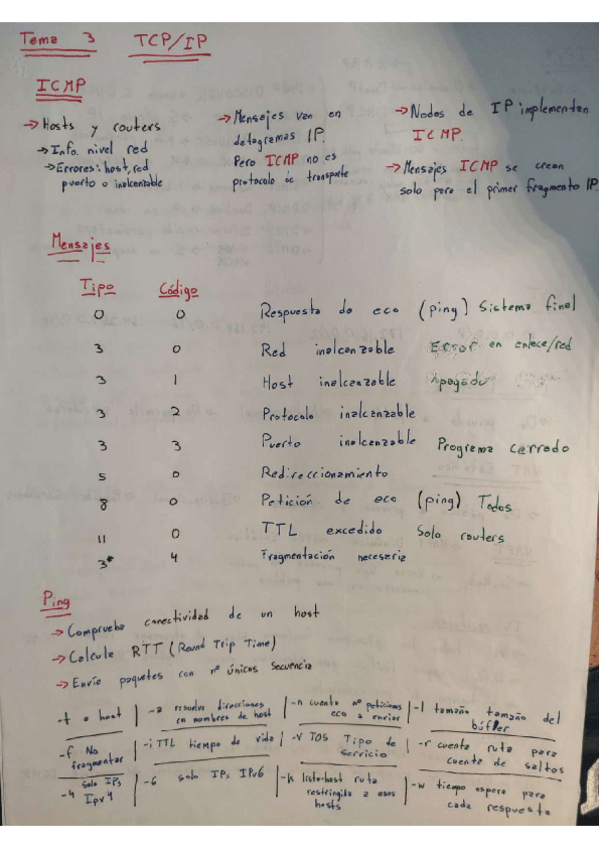 Tema 3 TCP/IP
ICMP
→ Hosts y routers
→ Info. nivel red
→ Errores: host, red
puerto o inalcanzable
→ Mensajes van en
datagramas IP.
Pero ICMP no es
protocolo de transporte
→ Nodos de IP implementen
ICMP.
→ Mensajes ICMP se crean
solo para el primer fragmento IP.
Mensajes
Tipo Código
0 0 Respuesta de eco (ping) Sistema final
3 0 Red inalcanzable Error en enlace/red
3 1 Host inalcanzable Apagado
3 2 Protocolo inalcanzable
3 3 Puerto inalcanzable Programa cerrado
5 0 Redireccionamiento
8 0 Petición de eco (ping) Todos
11 0 TTL excedido Solo routers
3* 4 Fragmentación necesaria
Ping
→ Comprueba conectividad de un host
→ Calcula RTT (Round Trip Time)
→ Envía paquetes con nº únicos secuencia
-t a host | -a resuelve direcciones en nombres de host | -n cuenta nº peticiones eco a enviar | -l tamaño tamaño del búfer
-f No fragmentar | -i TTL tiempo de vida | -v TOS Tipo de servicio | -r cuenta ruta para cuenta de saltos
-4 solo IPs IPv4 | -6 solo IPs IPv6 | -k lista-host ruta restringida a esos hosts | -w tiempo espera para cada respuesta